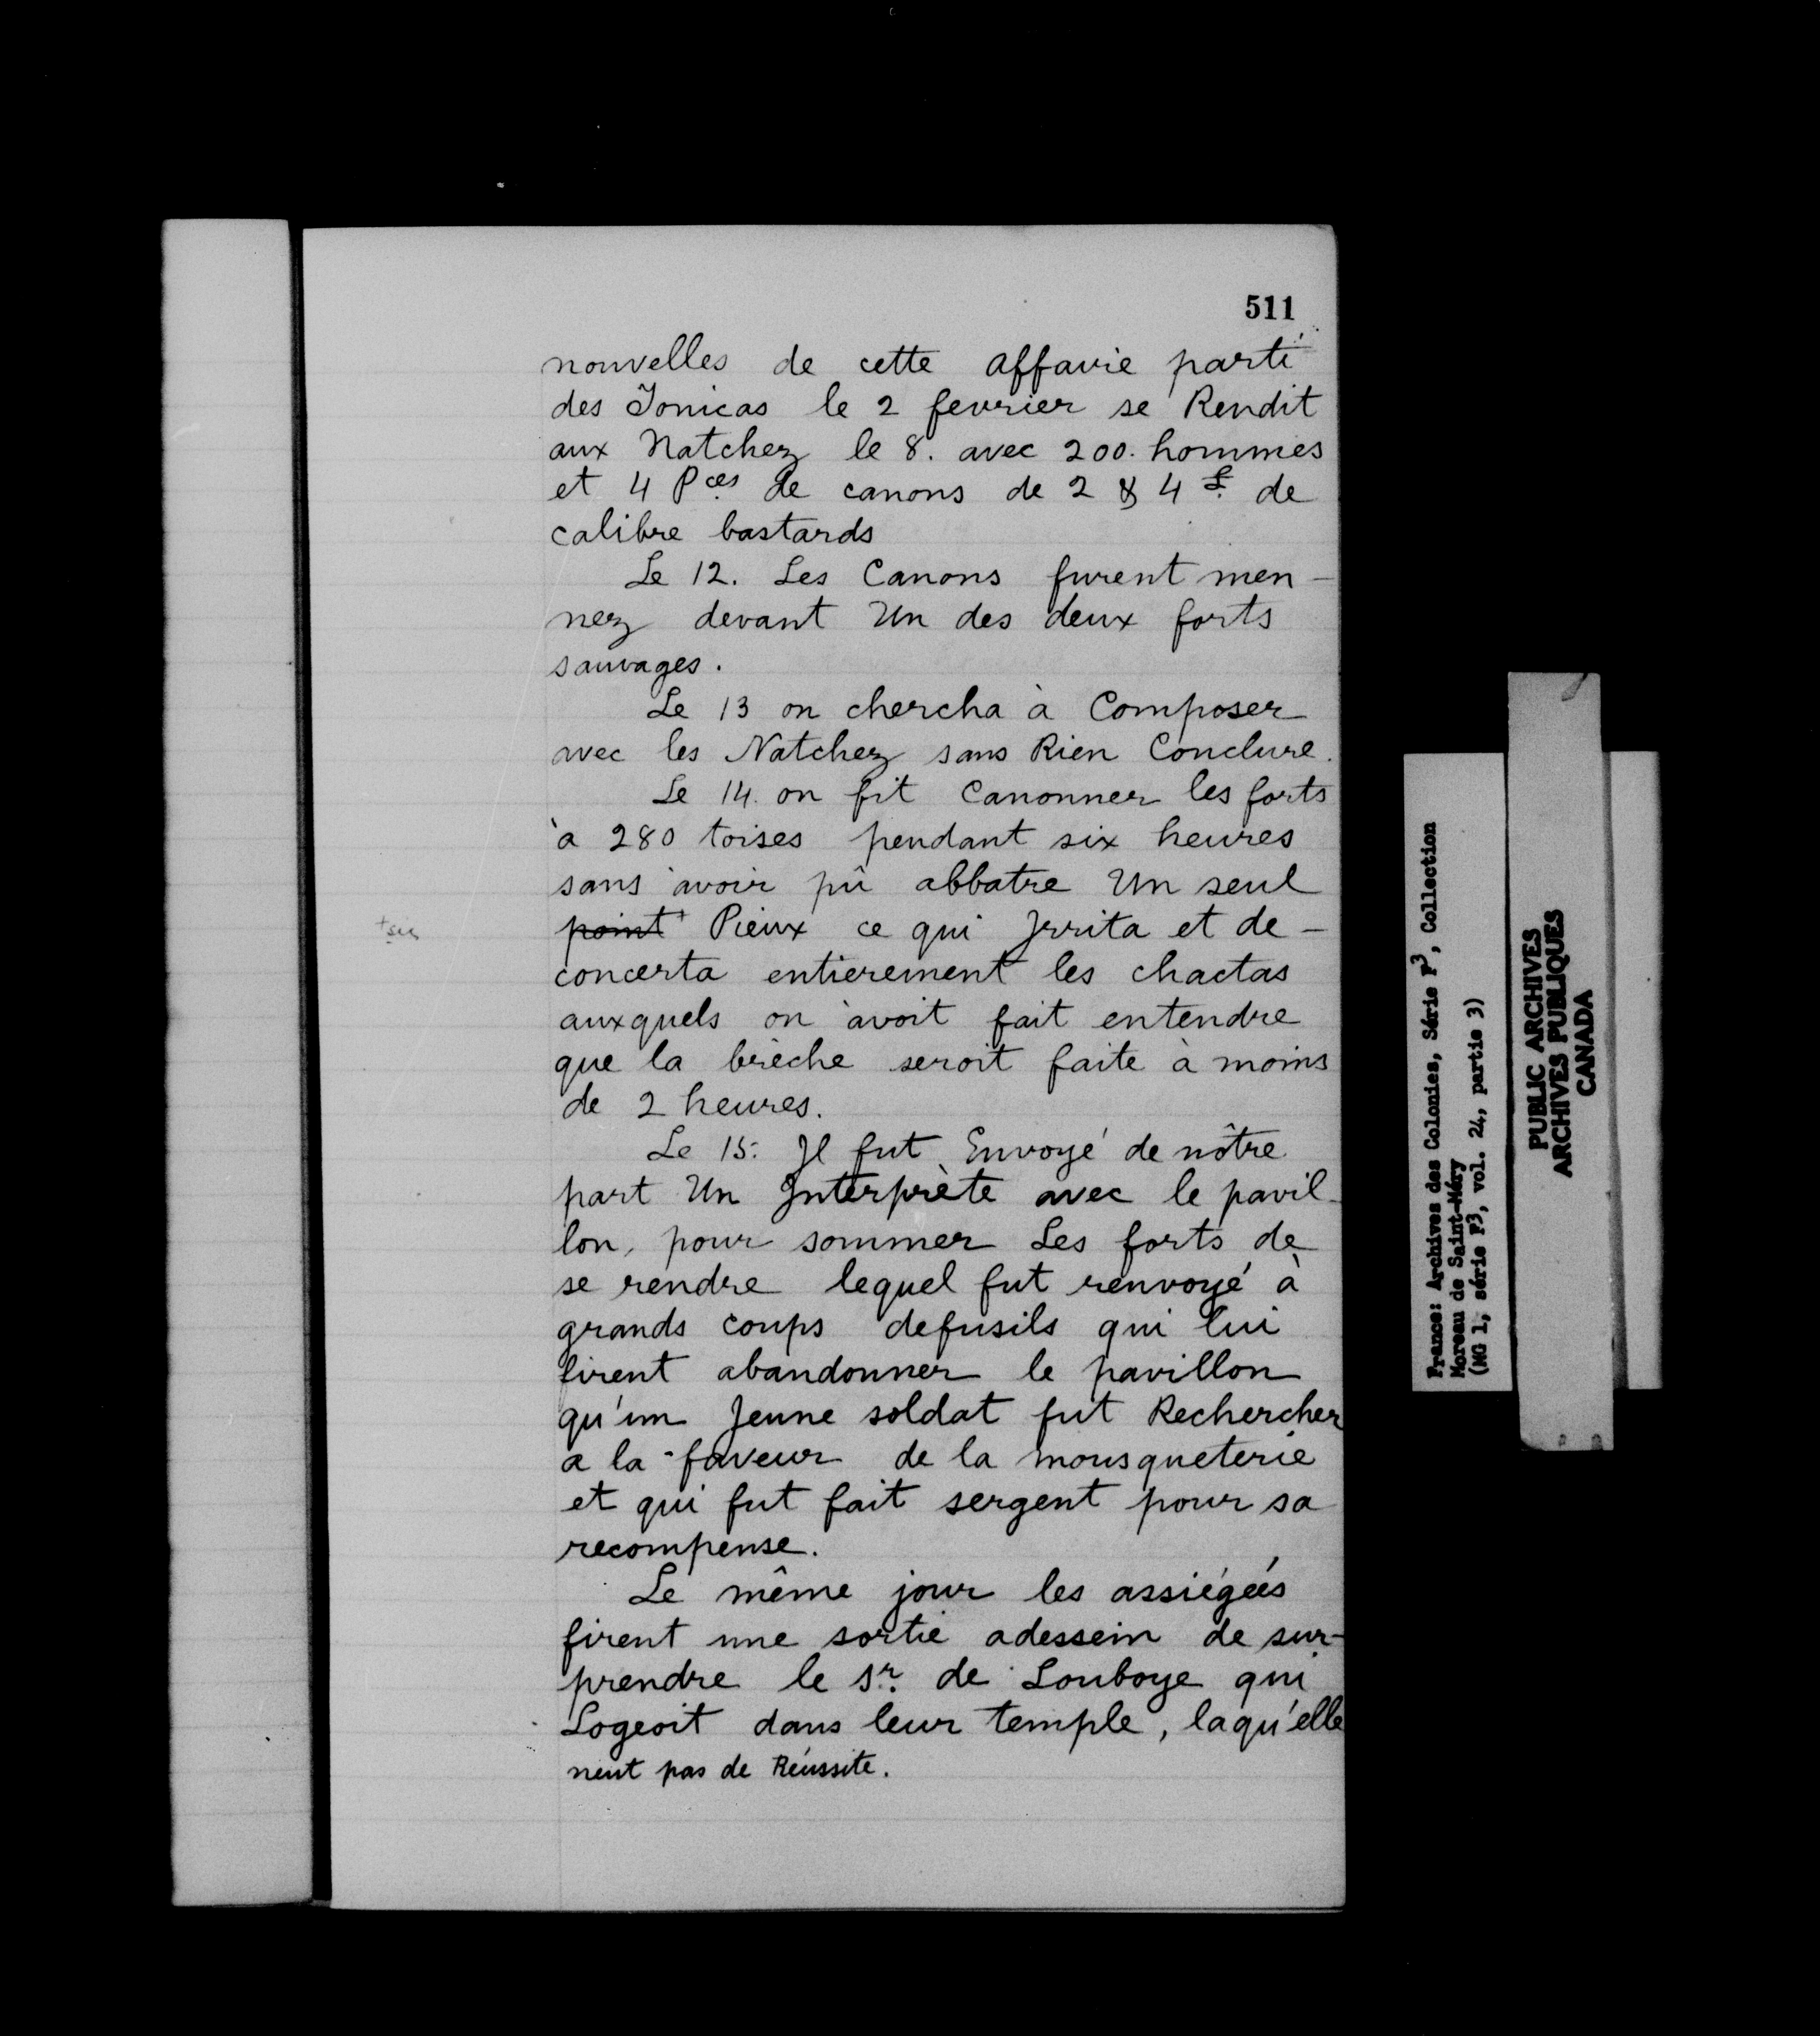 511
nouvelles de cette affavie parti
des Tonicas le 2 fevrier se Rendit
aux Natchez le 8. avec 200. hommes
et 4 Pces de canons de 2 & 4 £ de
calibre bastards
Le 12. Les Canons furent men-
nez devant Un des deux forts
sauvages.
Le 13 on chercha à Composer
avec les Natchez sans Rien Conclure.
Le 14. on fit Canonner les forts
à 280 toises pendant six heures
sans avoir pû abbatre Un seul
+sic
point + Pieux ce qui Jrrita et de-
concerta entierement les chactas
auxquels on avoit fait entendre
que la brèche seroit faite à moins
de 2 heures.
Le 15: Jl fut Envoyé de nôtre
part Un Jnterprète avec le pavil-
lon, pour sommer Les forts de
se rendre lequel fut renvoyé à
grands coups defusils qui lui
firent abandonner le pavillon
qu'un Jeune soldat fut Rechercher
a la faveur de la mousqueterie
et qui fut fait sergent pour sa
recompense.
Le même jour les assiégées
firent une sortie adessein de sur-
prendre le Sr. de Louboye qui
Logeoit dans leur temple, laqu'elle
neut pas de Réussite.
France: Archives des Colonies, Série F3, Collection
Moreau de Saint-Méry
(MG 1, série F3, vol. 24, partie 3)
PUBLIC ARCHIVES
ARCHIVES PUBLIQUES
CANADA